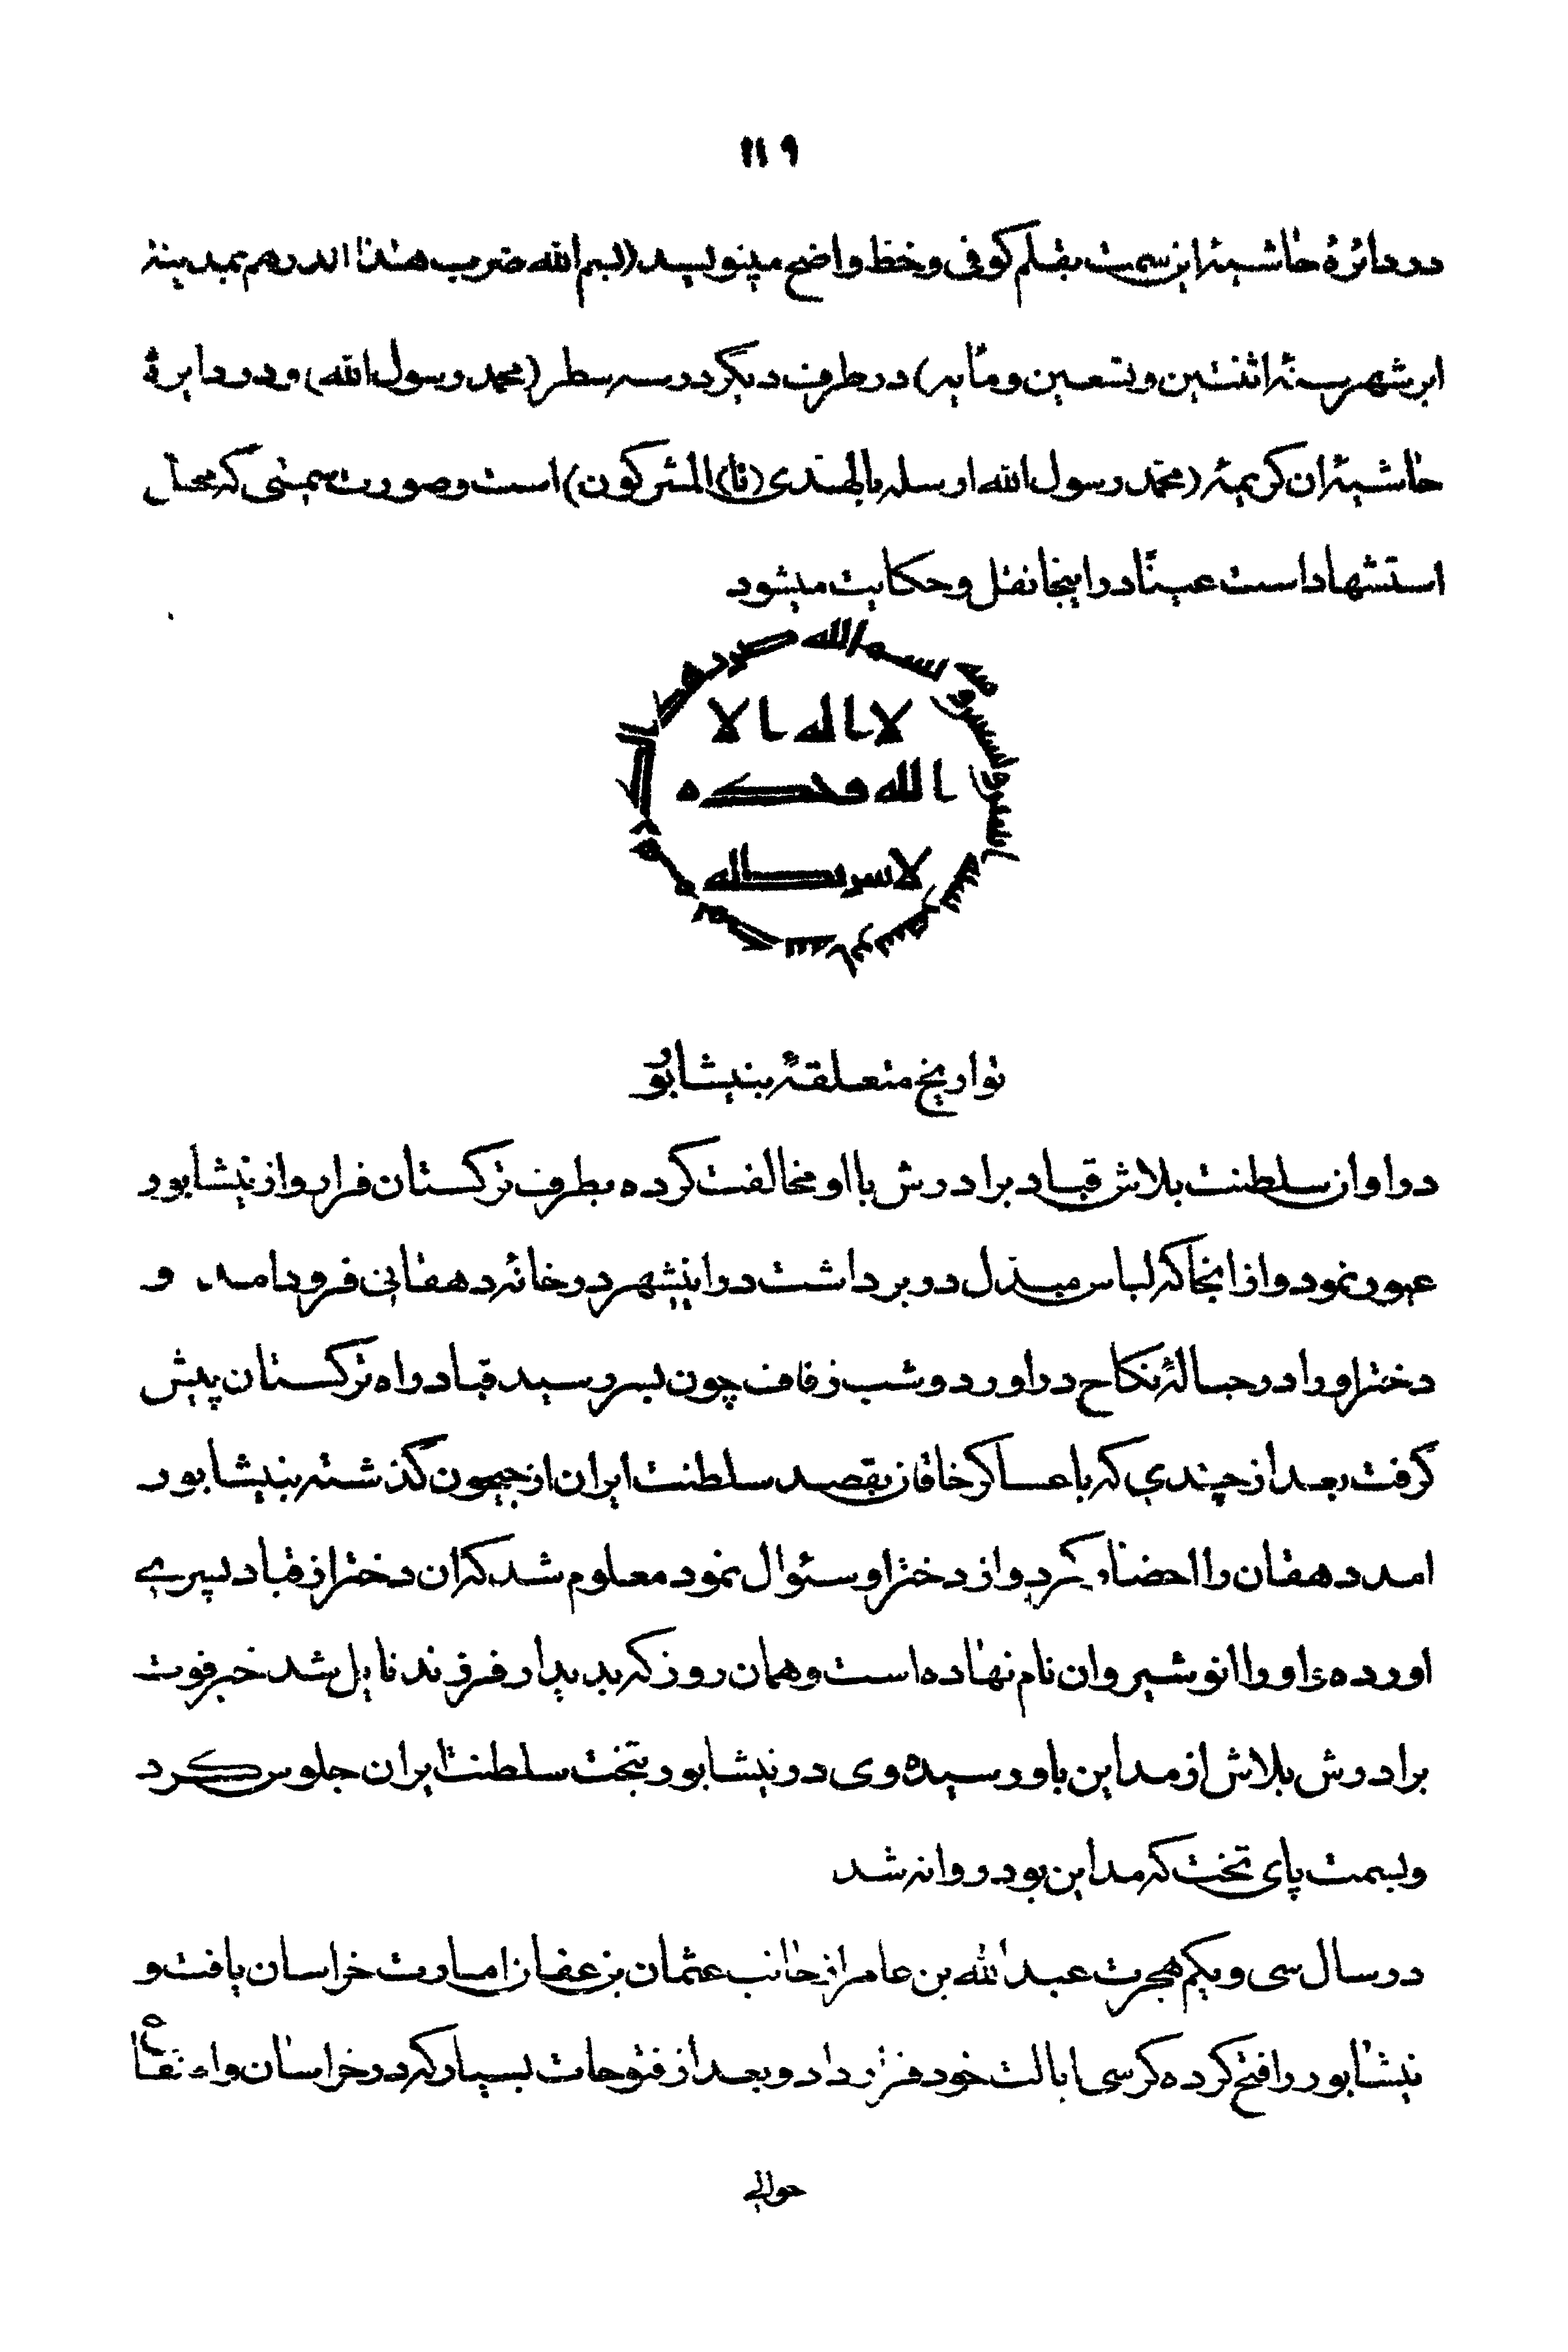 ۱۱۹
در دائرهٔ حاشیهٔ این سمت بقلم کوفی و خط واضح مینویسد (بسم الله ضرب هذا الدرهم بمدینة
ابرشهر سنة اثنتین و تسعین و مایه) در طرف دیگر در سه سطر (محمد رسول الله) و در دایرهٔ
حاشیهٔ ان کریمهٔ (محمد رسول الله ارسله بالهدی (تا) المشرکون) است و صورت سمتی که محل
استشهاد است عیناً در اینجا نقل و حکایت میشود
لا اله الا
الله وحده
لا شریک له
تواریخ متعلقهٔ بنیشابور
در اوان سلطنت بلاش قباد برادرش با او مخالفت کرده بطرف ترکستان فرار و از نیشابور
عبور نمود و از انجا که لباس مبذل در بر داشت در اینشهر در خانهٔ دهقانی فرود امد و
دختر او را در حبالهٔ نکاح در اورد و شب زفاف چون بسر رسید قباد راه ترکستان پیش
گرفت بعد از چندی که با عساکر خاقان بقصد سلطنت ایران از جیحون گذشته بنیشابور
امد دهقان را احضار کرد و از دختر او سئوال نمود معلوم شد که ان دختر از قباد پسری
اورده و او را انوشیروان نام نهاده است و همان روز که بدیدار فرزند نایل شد خبر فوت
برادرش بلاش از مداین باو رسیده وی در نیشابور بتخت سلطنت ایران جلوس کرد
و بسمت پای تخت که مداین بود روانه شد
در سال سی و یکم هجرت عبد الله بن عامر از جانب عثمان بن عفان امارت خراسان یافت و
نیشابور را فتح کرده کرسی ایالت خود قرار داد و بعد از فتوحات بسیار که در خراسان و
حوالی